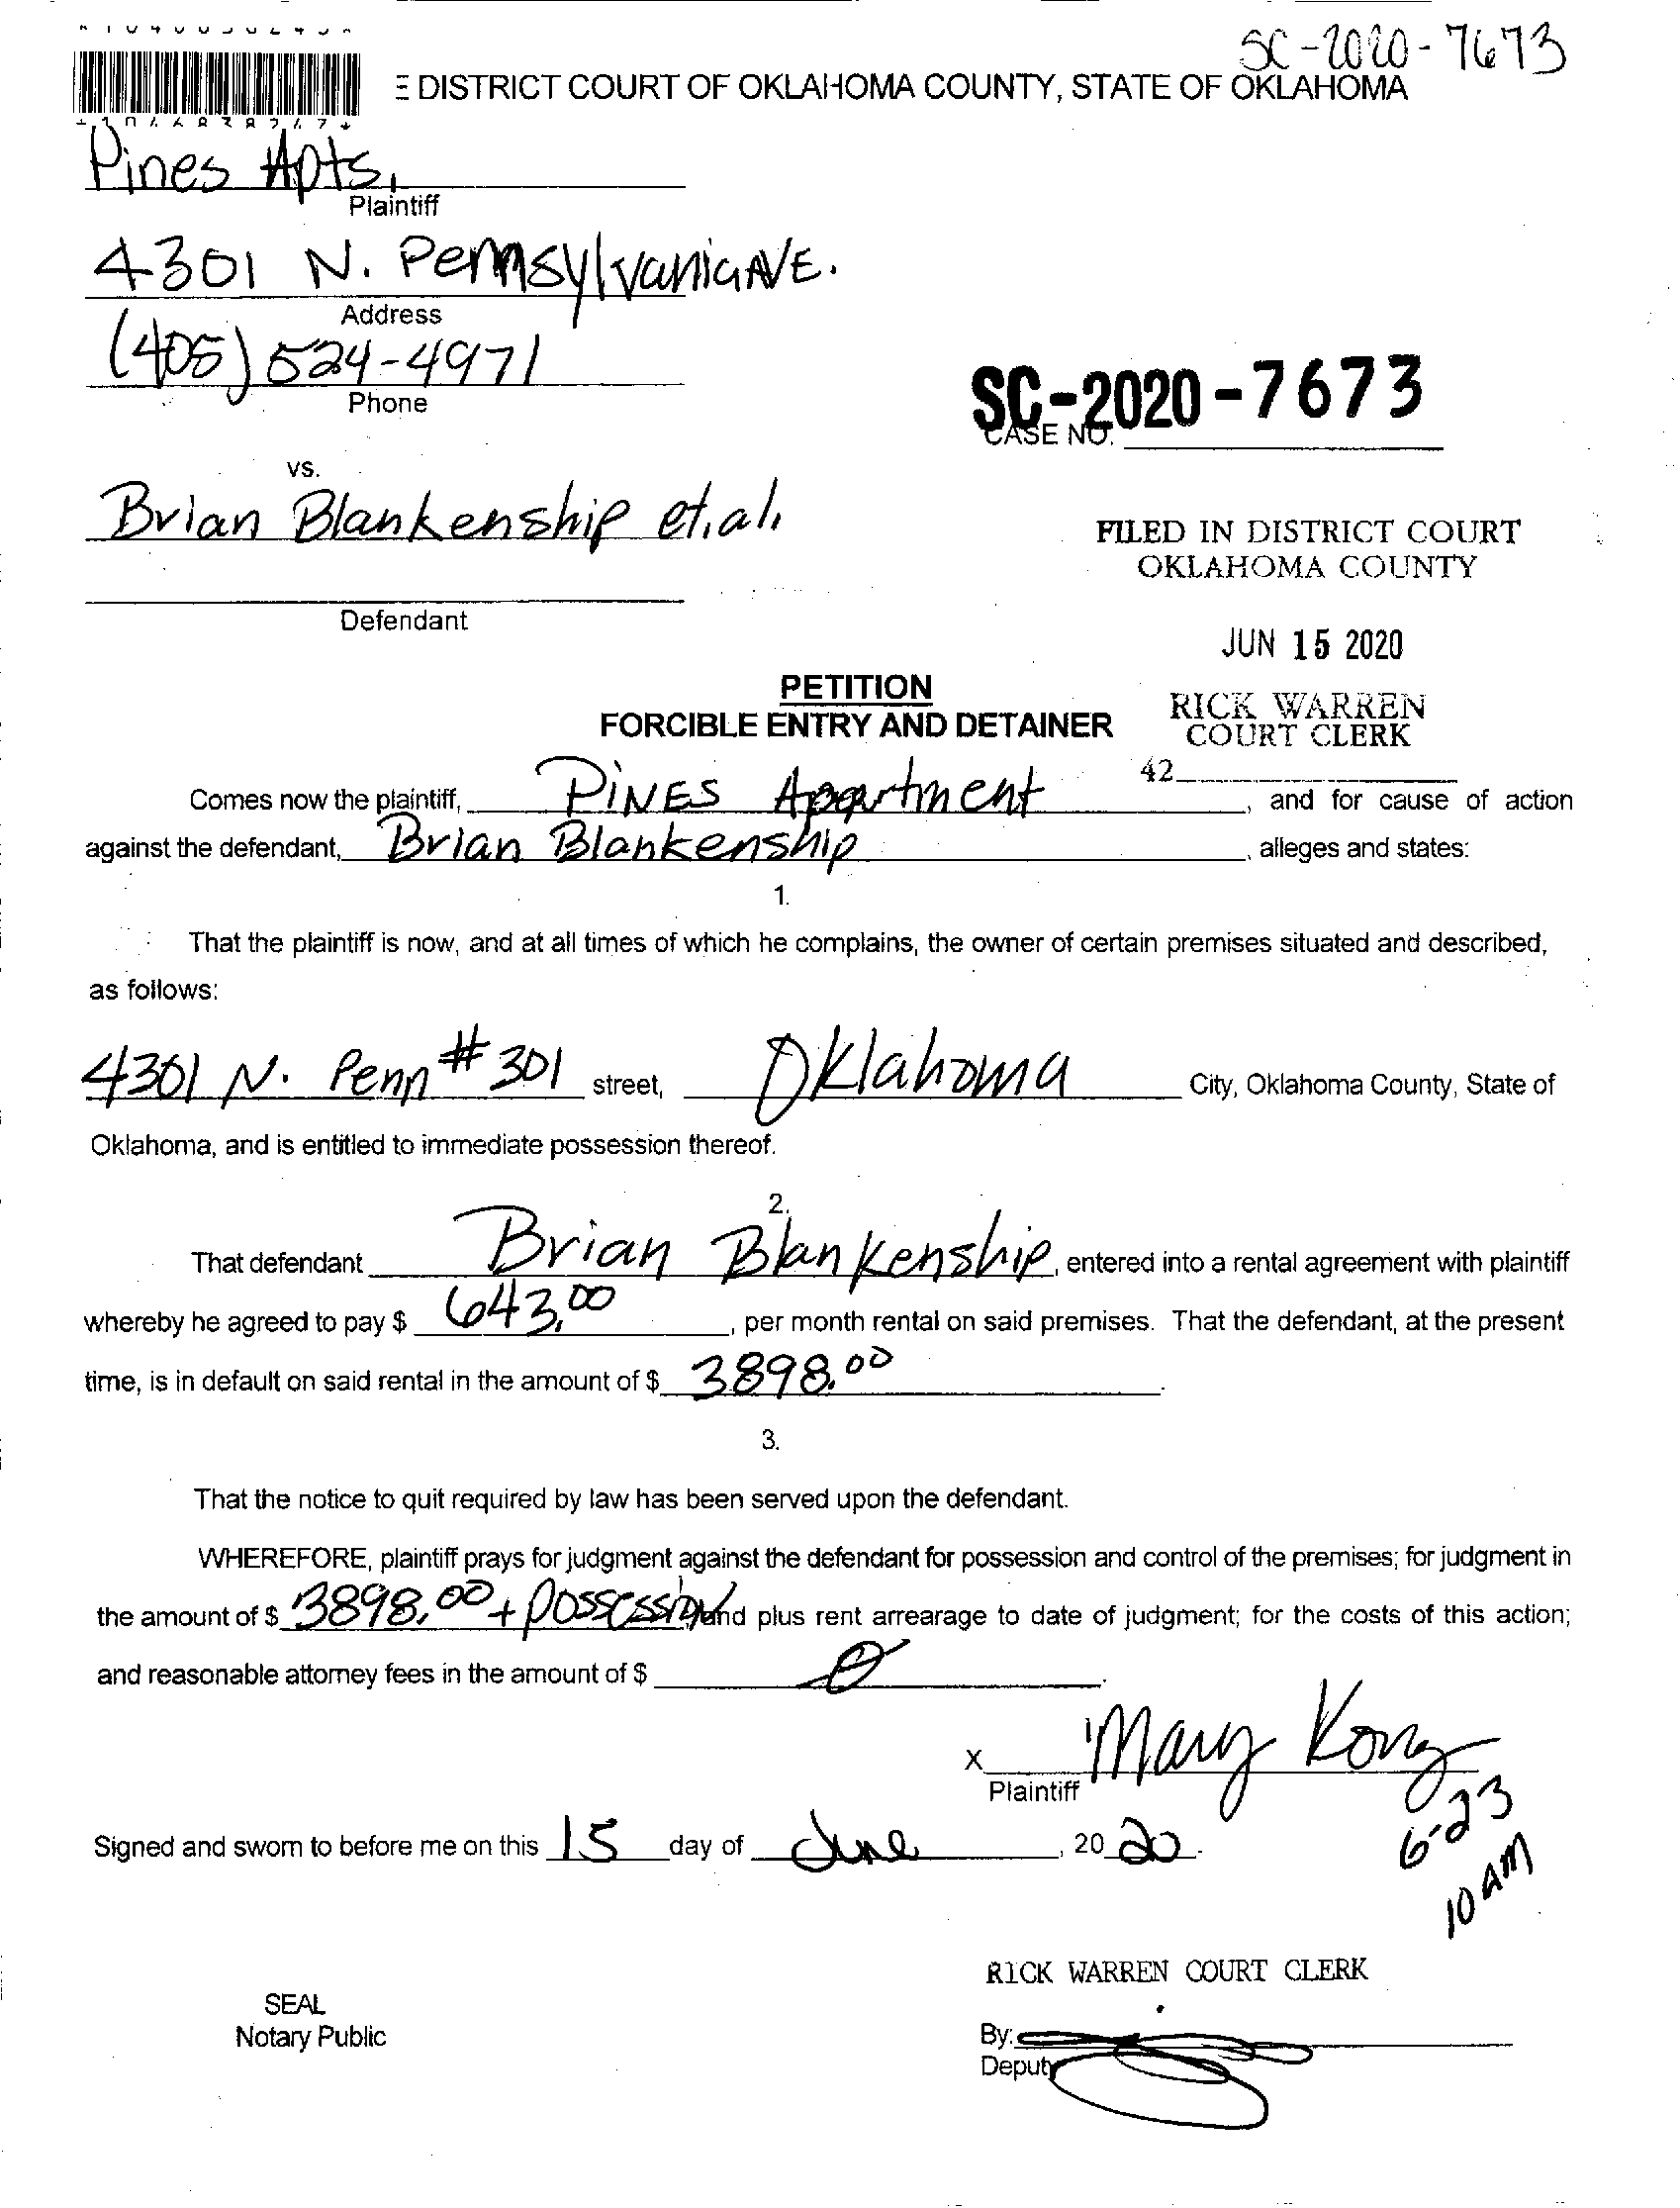 SC-2020-7673
E DISTRICT COURT OF OKLAHOMA COUNTY, STATE OF OKLAHOMA
Pines Apts,
Plaintiff
4301 N. Pennsylvania AVE.
Address
(405) 524-4971
Phone
SC-2020-7673
CASE NO.
vs.
Brian Blankenship et.al.
FILED IN DISTRICT COURT
OKLAHOMA COUNTY
Defendant
JUN 15 2020
PETITION
FORCIBLE ENTRY AND DETAINER
RICK WARREN
COURT CLERK
42
Comes now the plaintiff, PINES Apartment, and for cause of action
against the defendant, Brian Blankenship, alleges and states:
1.
That the plaintiff is now, and at all times of which he complains, the owner of certain premises situated and described,
as follows:
4301 N. Penn #301 street, Oklahoma City, Oklahoma County, State of
Oklahoma, and is entitled to immediate possession thereof.
2.
That defendant Brian Blankenship, entered into a rental agreement with plaintiff
whereby he agreed to pay $ 643.00, per month rental on said premises. That the defendant, at the present
time, is in default on said rental in the amount of $ 3898.00.
3.
That the notice to quit required by law has been served upon the defendant.
WHEREFORE, plaintiff prays for judgment against the defendant for possession and control of the premises; for judgment in
the amount of $ 3898.00 + possession and plus rent arrearage to date of judgment; for the costs of this action;
and reasonable attorney fees in the amount of $ 0.
X Mary Kong
Plaintiff
6-23
10 AM
Signed and sworn to before me on this 15 day of June, 2020.
RICK WARREN COURT CLERK
SEAL
Notary Public
By:
Deputy